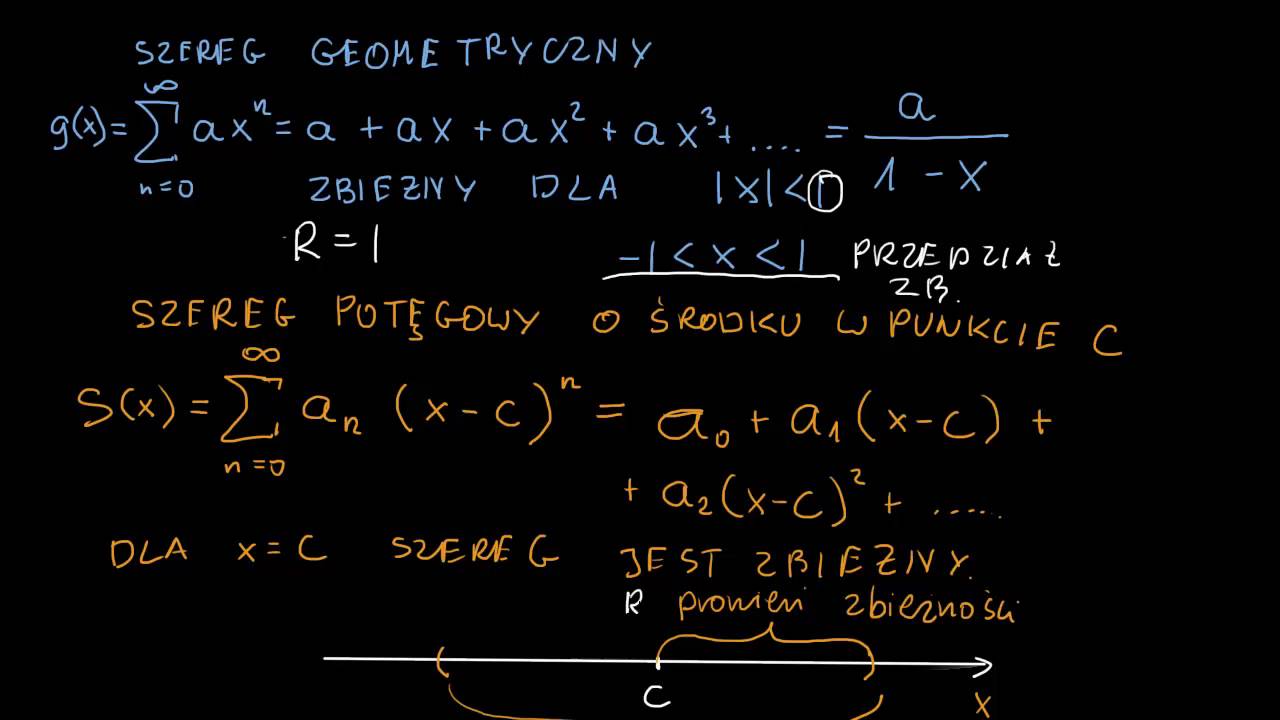 SZEREG GEOMETRYCZNY
g(x) = ∑_{n=0}^{∞} a x^n = a + ax + ax^2 + ax^3 + .... = a / (1 - x)
ZBIEŻNY DLA |x| < 1
R = 1
-1 < x < 1 PRZEDZIAŁ
ZB.
SZEREG POTĘGOWY O ŚRODKU W PUNKCIE C
S(x) = ∑_{n=0}^{∞} a_n (x - c)^n = a_0 + a_1 (x - c) +
+ a_2 (x - c)^2 + .....
DLA x = C SZEREG JEST ZBIEŻNY.
R promień zbieżności
C
x